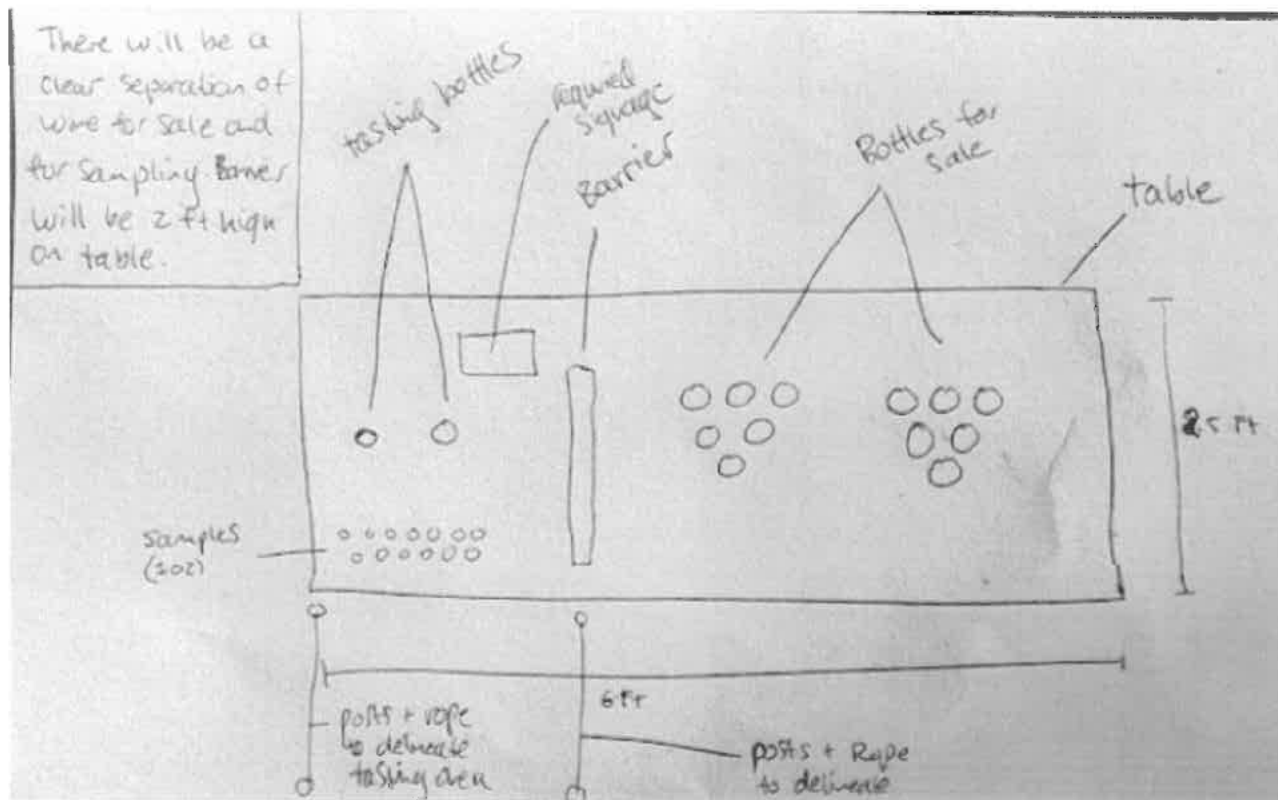 There will be a
clear separation of
wine for sale and
for sampling. Barrier
will be 2 ft high
on table.
tasting bottles
required
signage
Barrier
Bottles for
sale
table
2.5 ft
samples
(1oz)
6 Ft
posts + rope
to delineate
tasting area
posts + Rope
to delineate